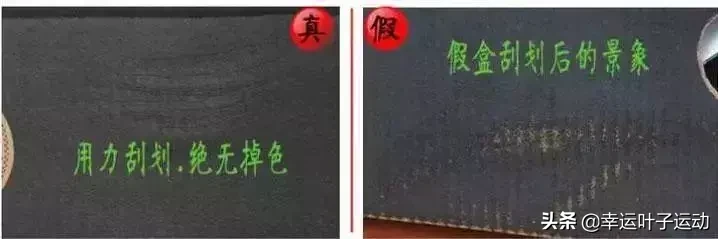 真
用力刮划.绝无掉色
假
假盒刮划后的景象
头条 @幸运叶子运动